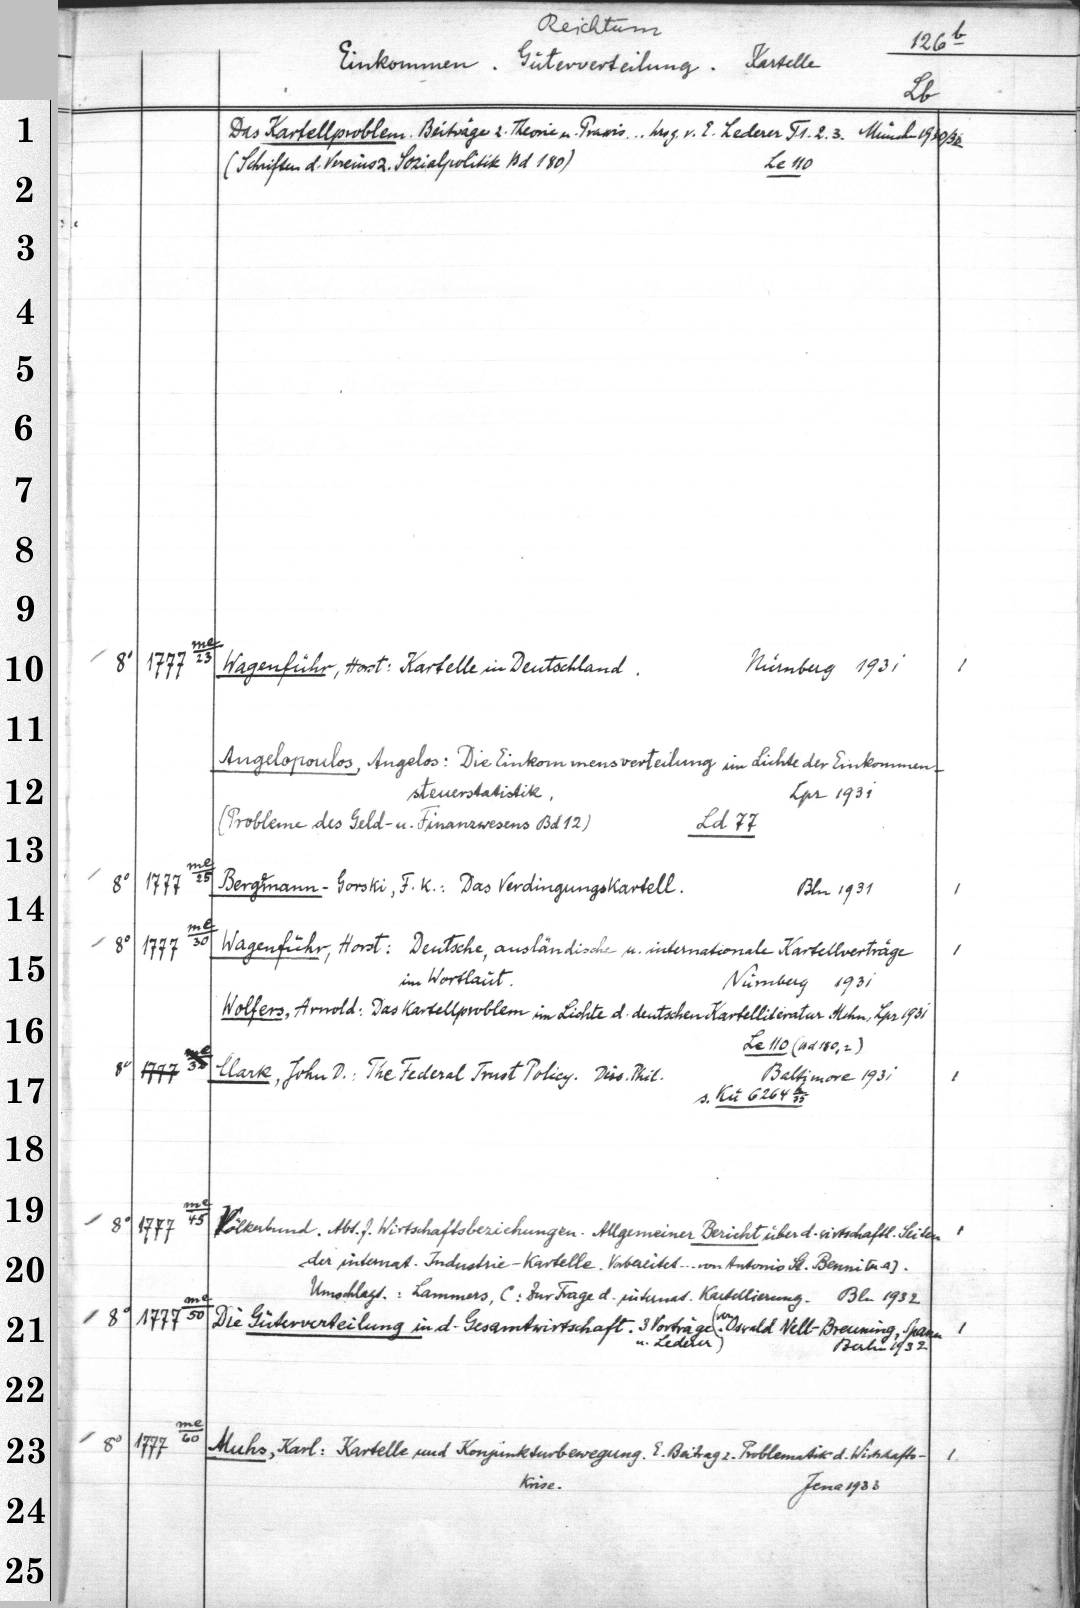 Reichtum
Einkommen . Güterverteilung . Kartelle
126 b
Lb
1
Das Kartellproblem. Beiträge z. Theorie u. Praxis... hrsg. v. E. Lederer T1. 2. 3. Münch 1930/32
(Schriften d. Vereins z. Sozialpolitik Bd 180) Le 110
2
3
4
5
6
7
8
9
10
8° 1777 me/23 Wagenführ, Horst: Kartelle in Deutschland. Nürnberg 1931 1
11
Angelopoulos, Angelos: Die Einkommensverteilung im Lichte der Einkommen-
12
steuerstatistik, Lpz 1931
(Probleme des Geld- u. Finanzwesens Bd 12) Ld 77
13
8° 1777 me/25 Bergmann-Gorski, F. K.: Das Verdingungskartell. Bln 1931 1
14
8° 1777 me/30 Wagenführ, Horst: Deutsche, ausländische u. internationale Kartellverträge 1
15
im Wortlaut. Nürnberg 1931
Wolfers, Arnold: Das Kartellproblem im Lichte d. deutschen Kartelliteratur Mchn, Lpz 1931
16
Le 110 (Bd 180,2)
8° 1777 me Clark, John D.: The Federal Trust Policy. Diss. Phil. Baltimore 1931 1
17
s. Kü 6264
18
19
8° 1777 me/45 Völkerbund. Abt. f. Wirtschaftsbeziehungen. Allgemeiner Bericht über d. wirtschaftl. Seiten 1
20
der internat. Industrie-Kartelle. Vorbereitet... von Antonio St. Benni [u. a.].
Umschlagt.: Lammers, C: Zur Frage d. internat. Kartellierung. Bln 1932
21
8° 1777 me/50 Die Güterverteilung in d. Gesamtwirtschaft. 3 Vorträge (von Oswald Nell-Breuning, Spann 1
u. Lederer) Berlin 1932
22
23
8° 1777 me/60 Muhs, Karl: Kartelle und Konjunkturbewegung. E. Beitrag z. Problematik d. Wirtschafts- 1
krise. Jena 1933
24
25